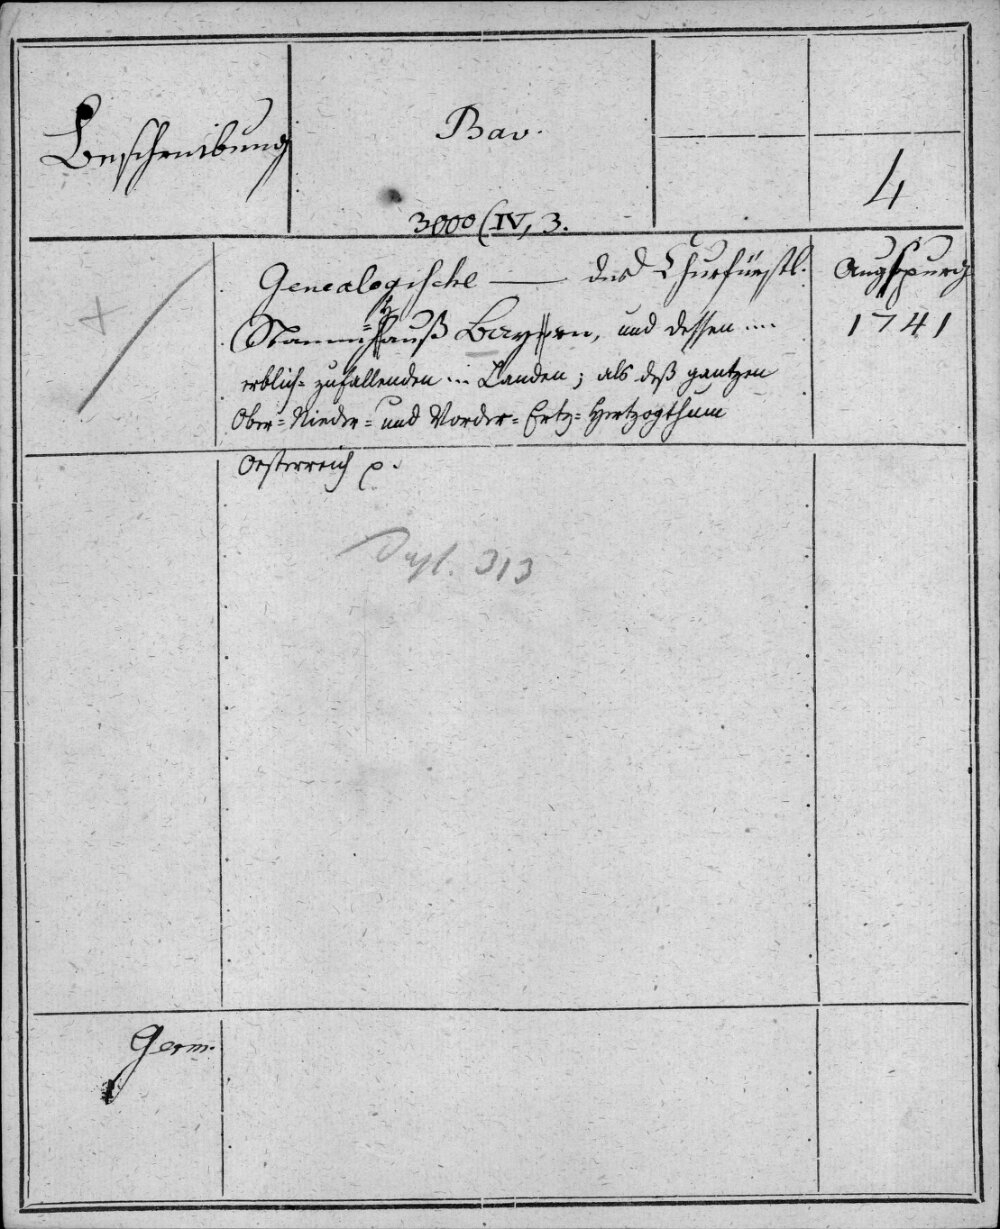 Beschreibung
Bav.
4
3000 (IV, 3.
Genealogische — des Churfürstl.
Augspurg
Stamm=hauß Bayern, und dessen ....
1741
erblich= zufallenden ... Landen; als deß gantzen
Ober= Nieder= und Vorder= Ertz= Hertzogthum
Oesterreich p.
313
Germ.